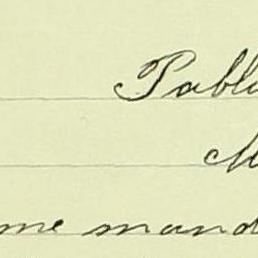 Pablo
M
me mand